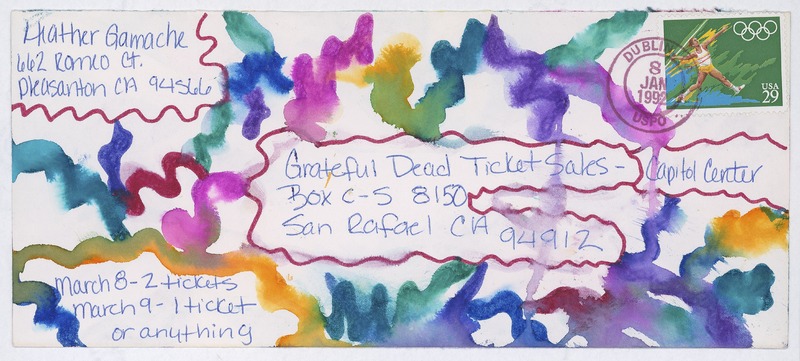 Heather Gamache
662 Romeo Ct.
Pleasanton CA 94566
DUBLIN
8
JAN
1992
USPO
USA
29
Grateful Dead Ticket Sales - Capitol Center
Box C-S 8150
San Rafael CA 94912
March 8 - 2 tickets
March 9 - 1 ticket
or anything